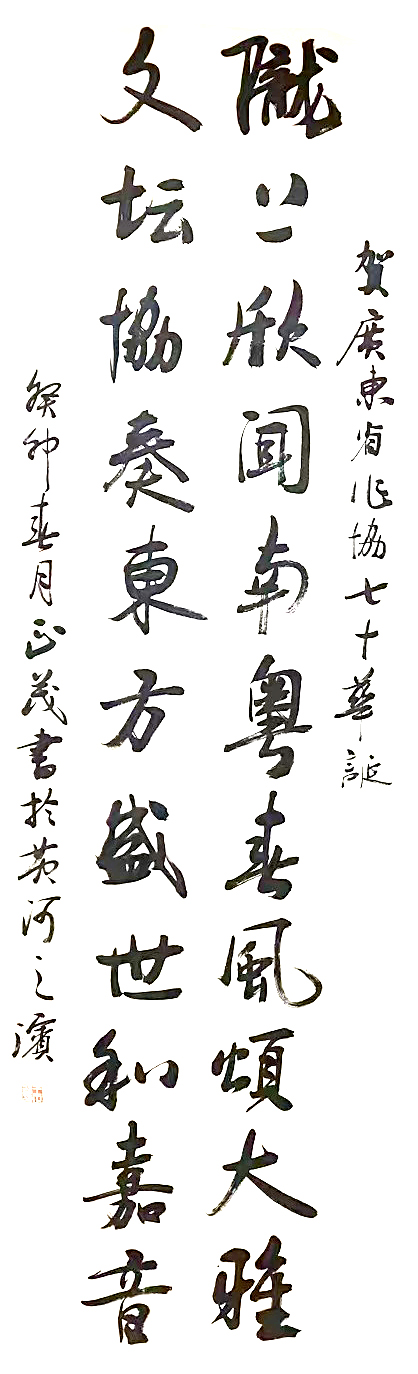 賀廣東省作協七十華誕
隴上欣聞南粵春風頌大雅
文坛協奏東方盛世和嘉音
癸卯春月正茂書於黄河之濱